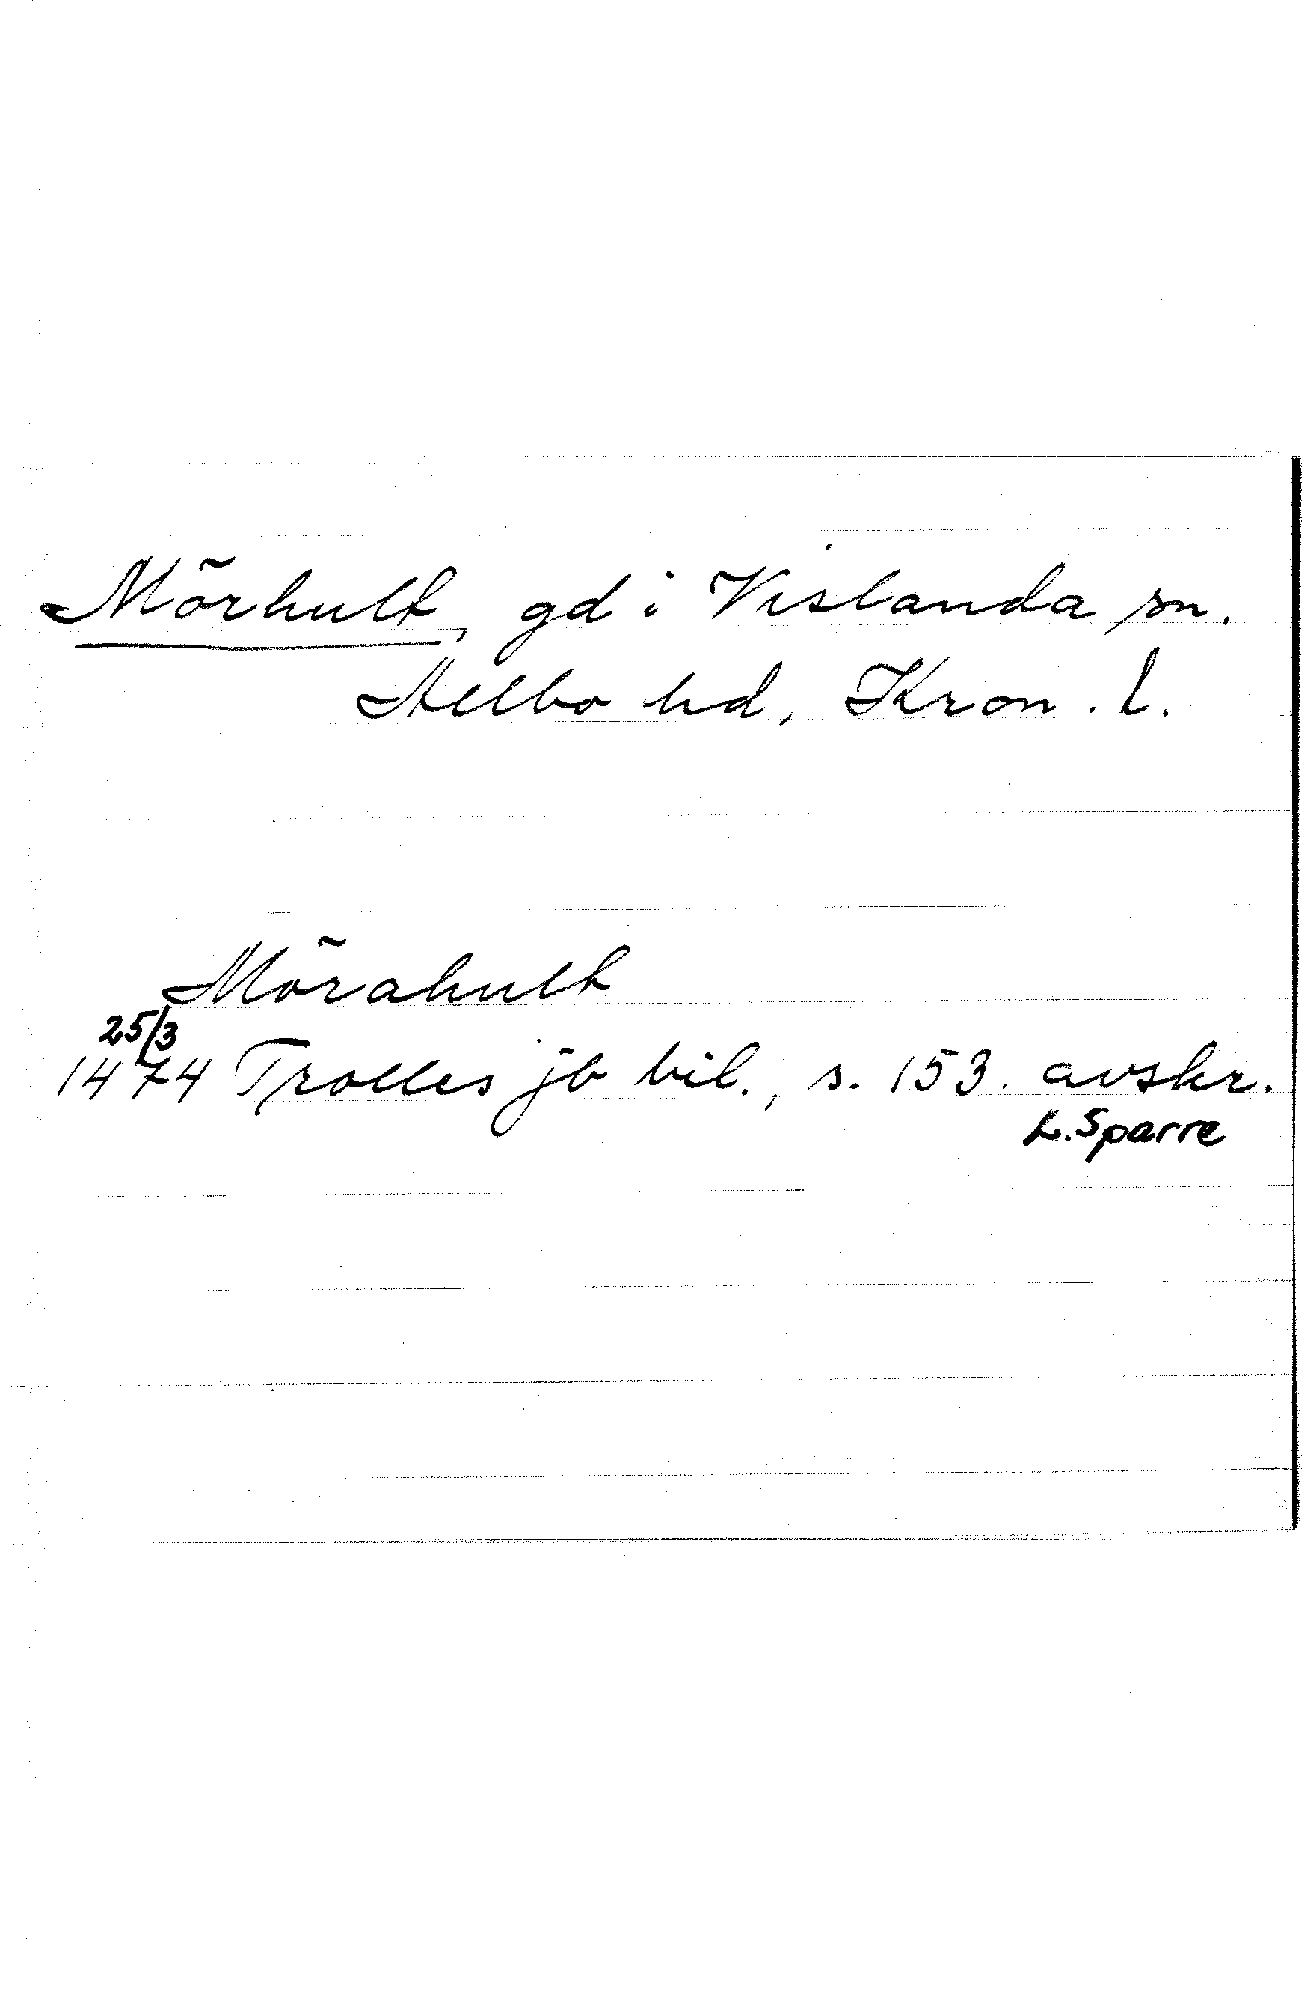 Mörhult, gd i Vislanda sn.
Allbo hd, Kron. l.
Mörahult
25/3
1474 Trolles jb bil., s. 153. avskr.
L. Sparre